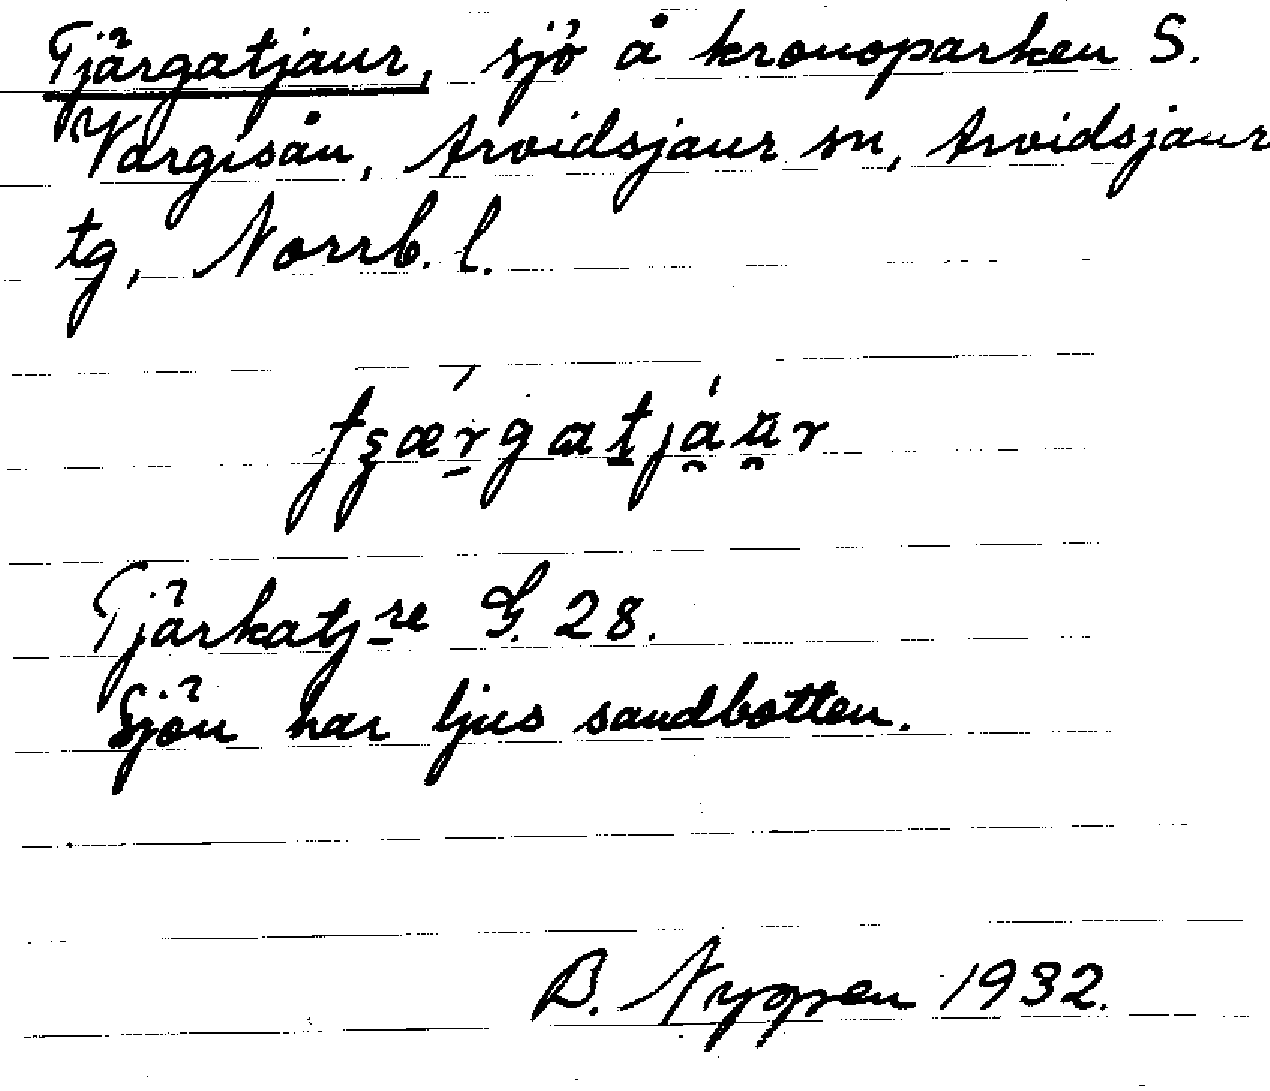 Tjärgatjaur, sjö å kronoparken S.
Vargisån, Arvidsjaur sn, Arvidsjaur
tg, Norrb. l.
Tjärkatj re G. 28.
Sjön har ljus sandbotten.
B. Nygren 1932.